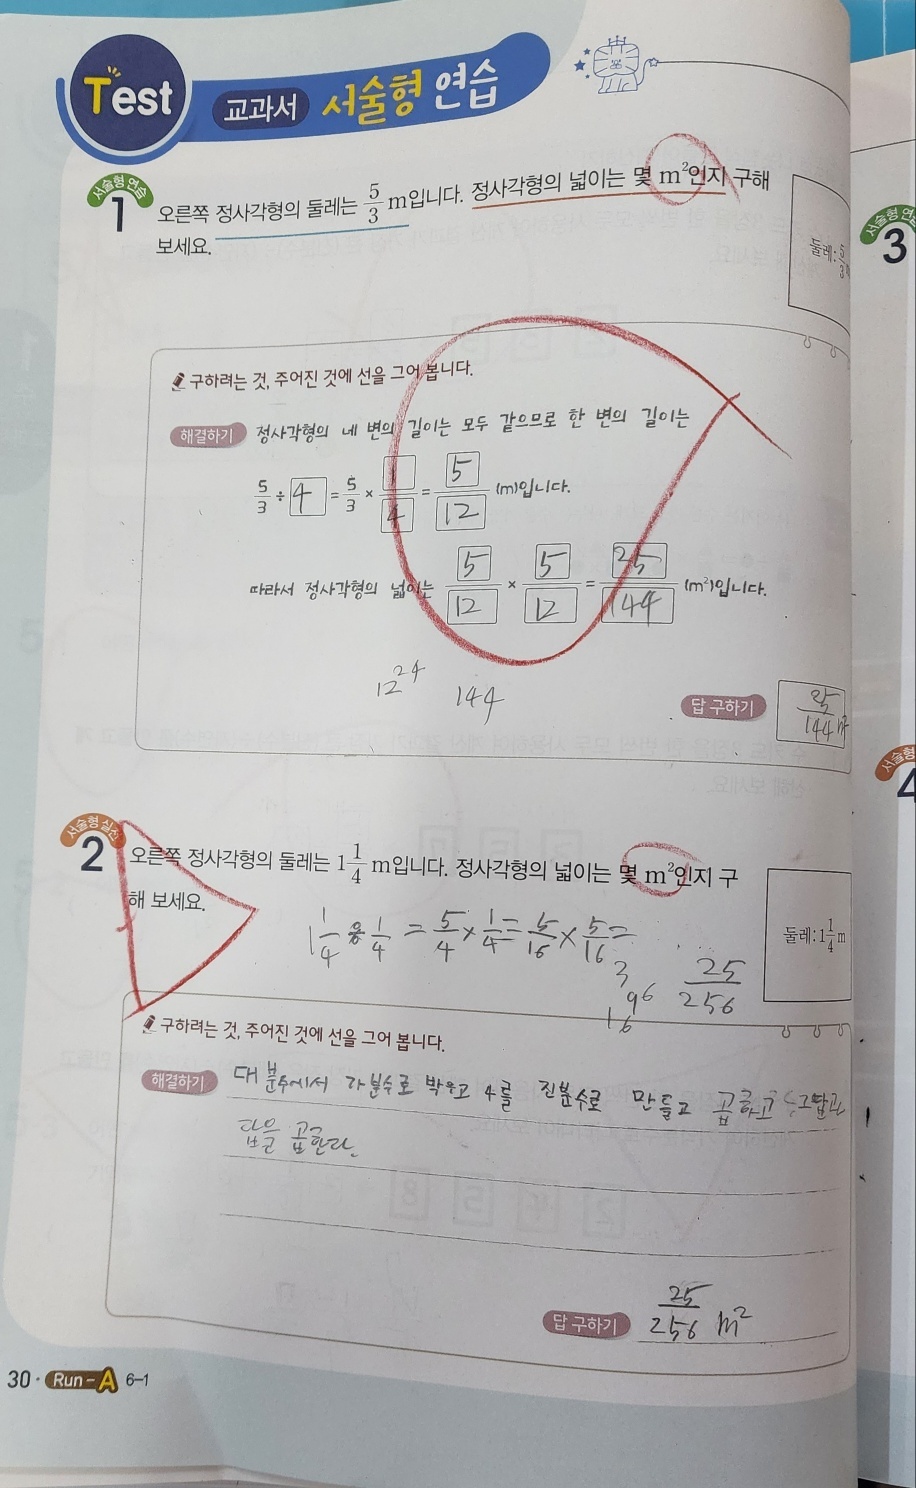 Test 교과서 서술형 연습
서술형 연습
1 오른쪽 정사각형의 둘레는 5/3 m입니다. 정사각형의 넓이는 몇 m²인지 구해
보세요.
둘레: 5/3
구하려는 것, 주어진 것에 선을 그어 봅니다.
해결하기 정사각형의 네 변의 길이는 모두 같으므로 한 변의 길이는
5/3 ÷ 4 = 5/3 × 1/4 = 5/12 (m)입니다.
따라서 정사각형의 넓이는 5/12 × 5/12 = 25/144 (m²)입니다.
12 24 144
답 구하기 25/144 m²
서술형 실전
2 오른쪽 정사각형의 둘레는 1 1/4 m입니다. 정사각형의 넓이는 몇 m²인지 구
해 보세요.
둘레: 1 1/4 m
1 1/4 1/4 = 5/4 × 1/4 = 5/16 × 5/16 =
3
96
16
25/256
구하려는 것, 주어진 것에 선을 그어 봅니다.
해결하기 대분수에서 가분수로 박우고 4를 진분수로 만들고 곱하고
답을 곱한다.
답 구하기 25/256 m²
30 · Run-A 6-1
서술형 연습
3
서술형
4